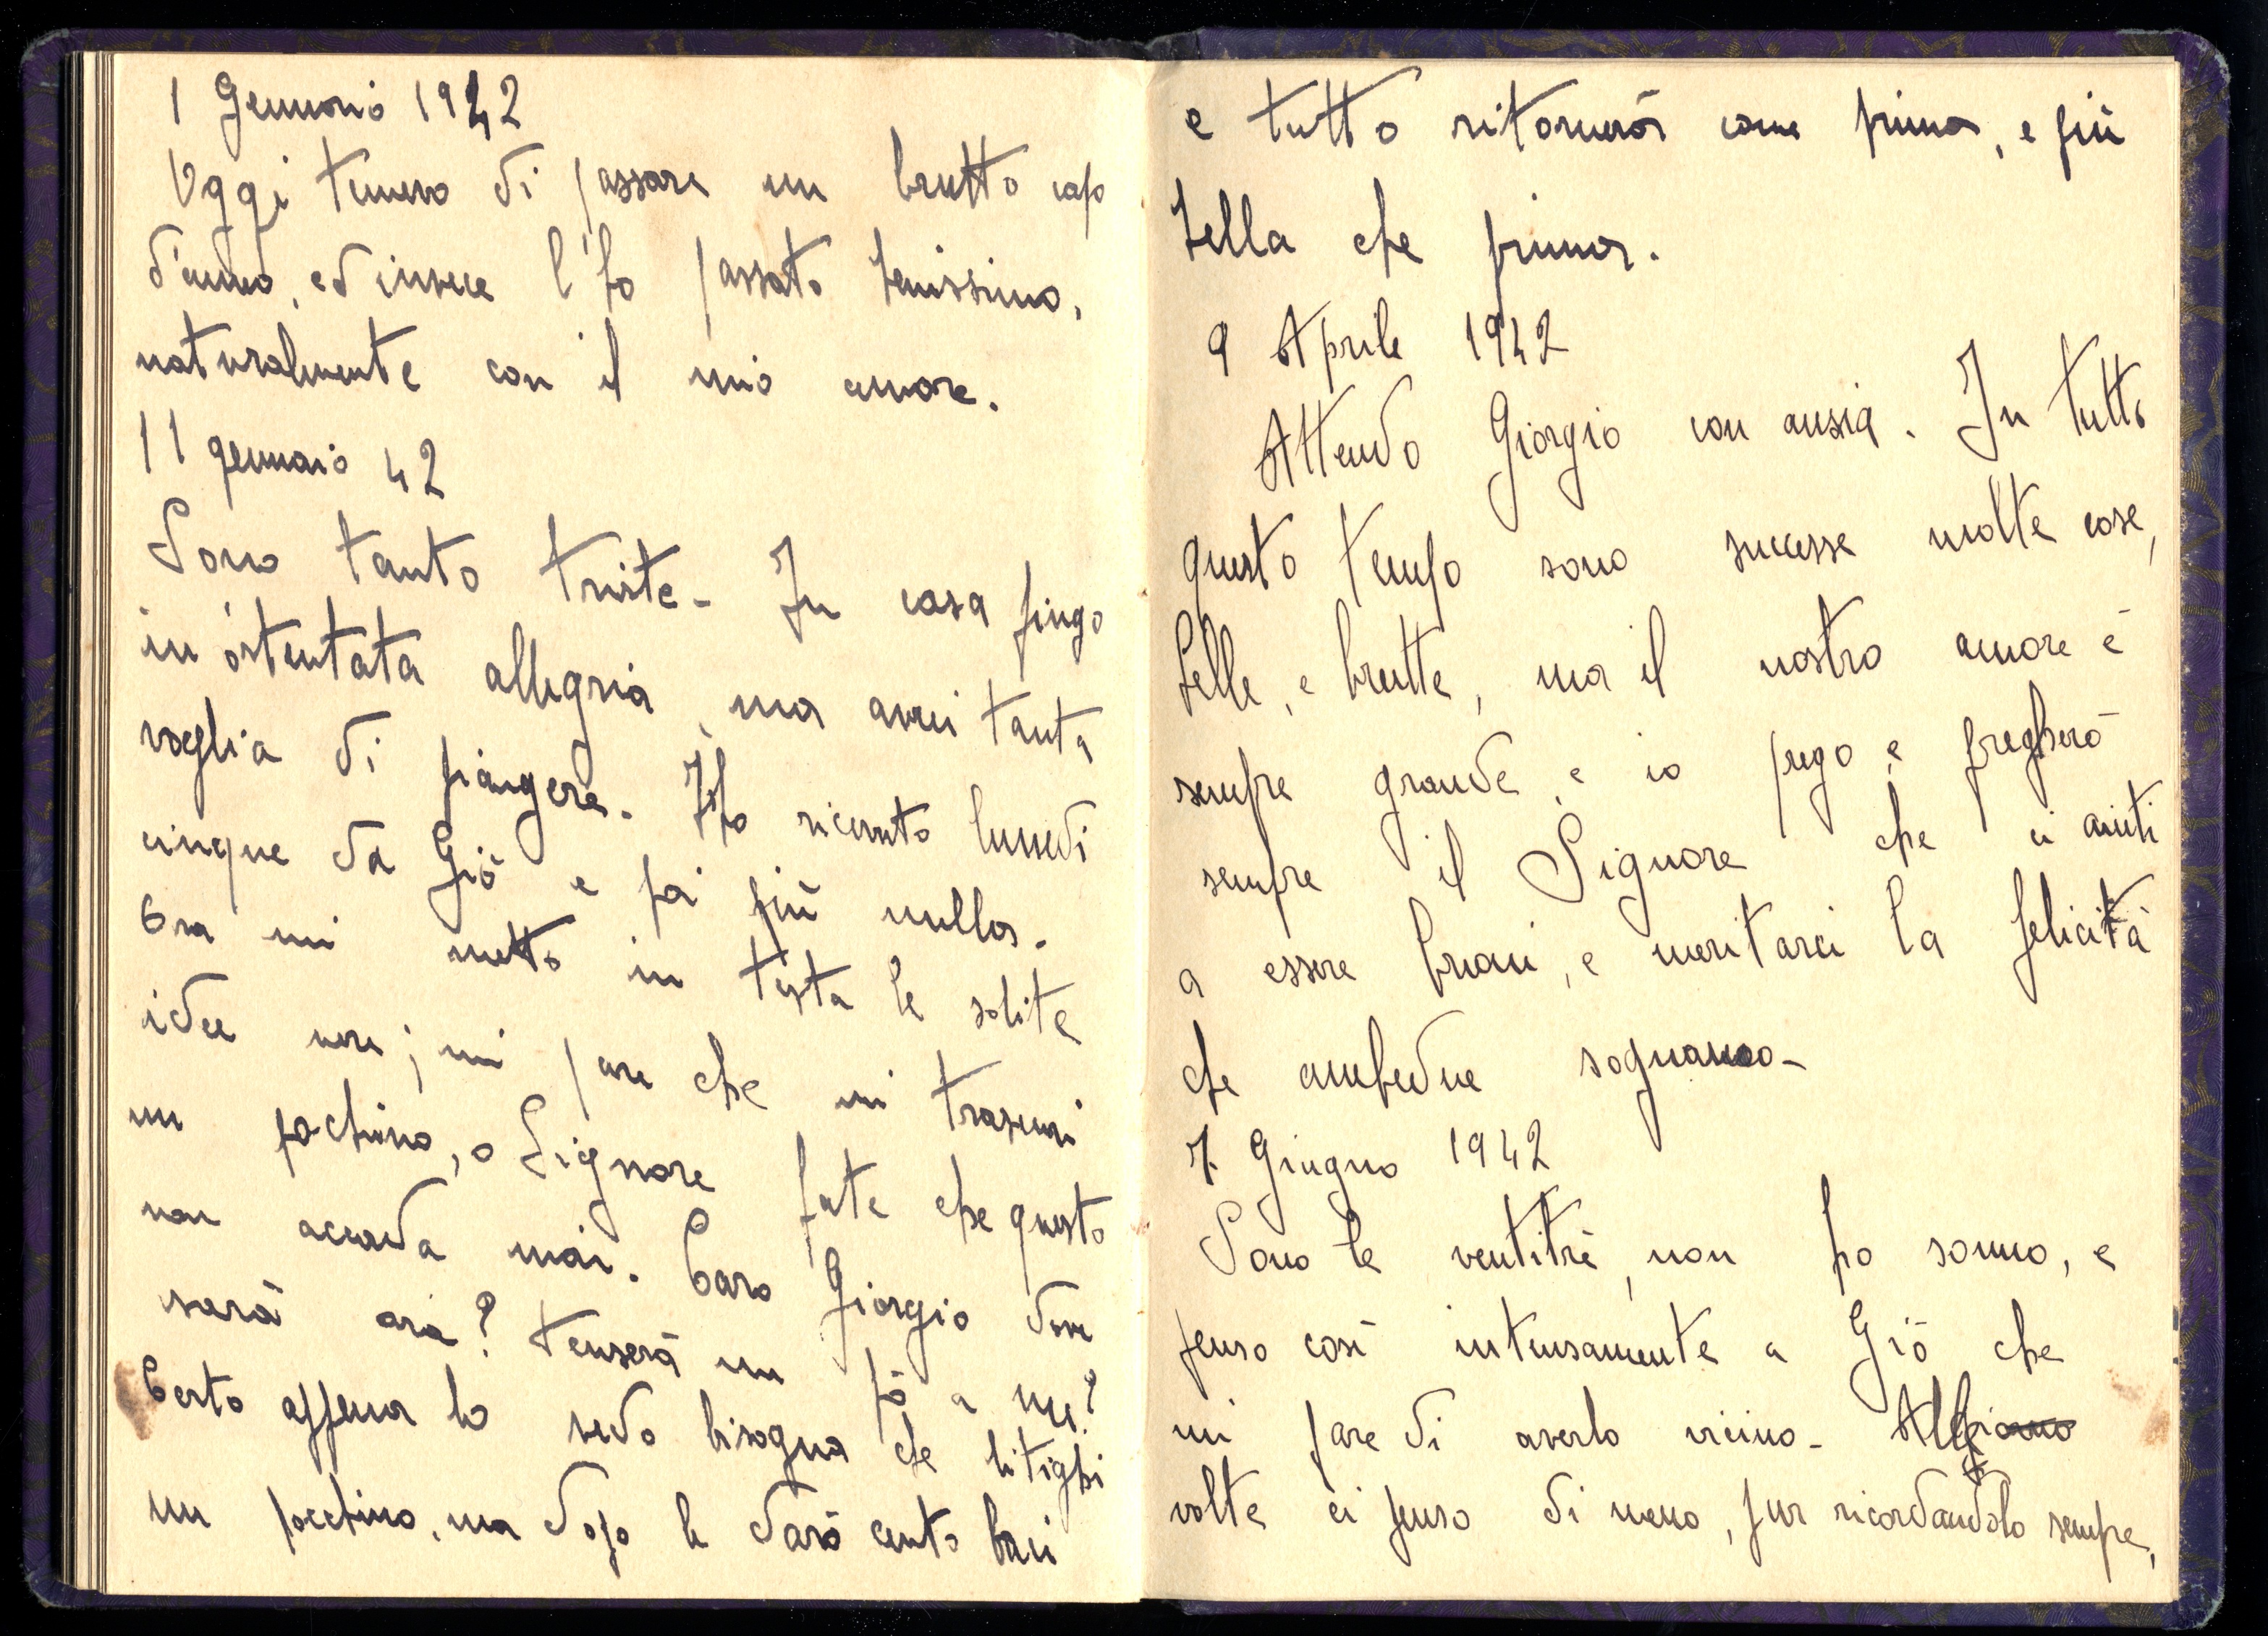 1 Gennaio 1942
Oggi temevo di passare un brutto capo
d'anno, ed invece l'ho passato benissimo,
naturalmente con il mio amore.
11 gennaio 42
Sono tanto triste - In casa fingo
un'ostentata allegria, ma avrei tanta
voglia di piangere. Ho ricevuto lunedì
cinque da Giò e poi più nulla.
Ora mi metto in testa le solite
idee nere; mi pare che mi trascuri
un pochino, o Signore fate che questo
non accada mai. Caro Giorgio dove
sarà ora? Penserà un pò a me?
Certo appena lo vedo bisogna che litighi
un pochino, ma dopo le darò cento baci
e tutto ritornerà come prima, e più
bella che prima.
9 Aprile 1942
Attendo Giorgio con ansia. In tutto
questo tempo sono successe molte cose,
belle, e brutte, ma il nostro amore è
sempre grande, e io prego e pregherò
sempre il Signore che ci aiuti
a essere buoni, e meritarci la felicità
che ambedue sogniamo -
7. Giugno 1942
Sono le ventitrè, non ho sonno, e
penso così intensamente a Giò che
mi pare di averlo vicino -
volte ci penso di meno, pur ricordandolo sempre,